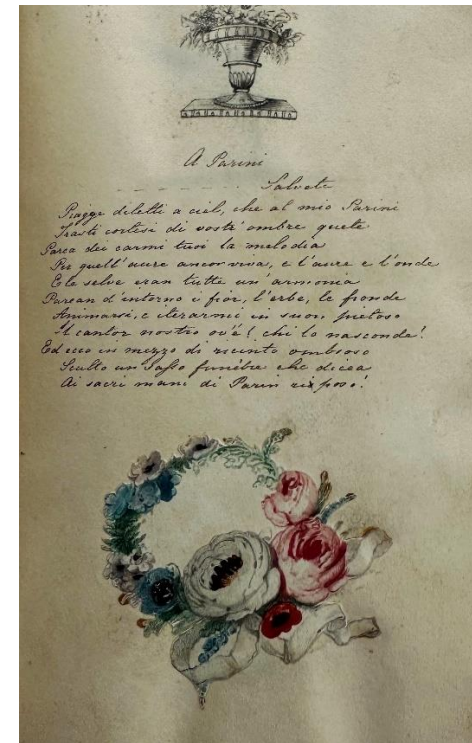 A Parini
- - - - - - - - - - Salvete
Piagge dilette a ciel, che al mio Parini
Foste cortesi di vostr'ombre quete
Parea dei carmi tuoi la melodia
Per quell'aure ancor viva, e l'aure e l'onde
E le selve eran tutte un'armonia
Parean d'intorno i fior, l'erbe, le fronde
Animarsi, e iterarmi in suon pietoso
Il cantor nostro ov'è! chi lo nasconde!
Ed ecco in mezzo di recinto ombroso
Sculto un Sasso funebre che dicea
Ai sacri mani di Parin riposo!